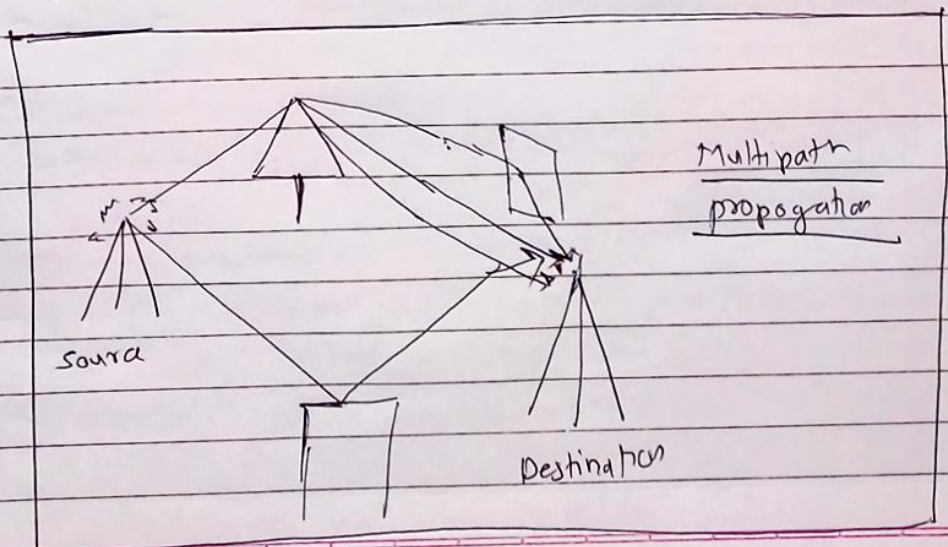 Multipath
propogation
Source
Destination